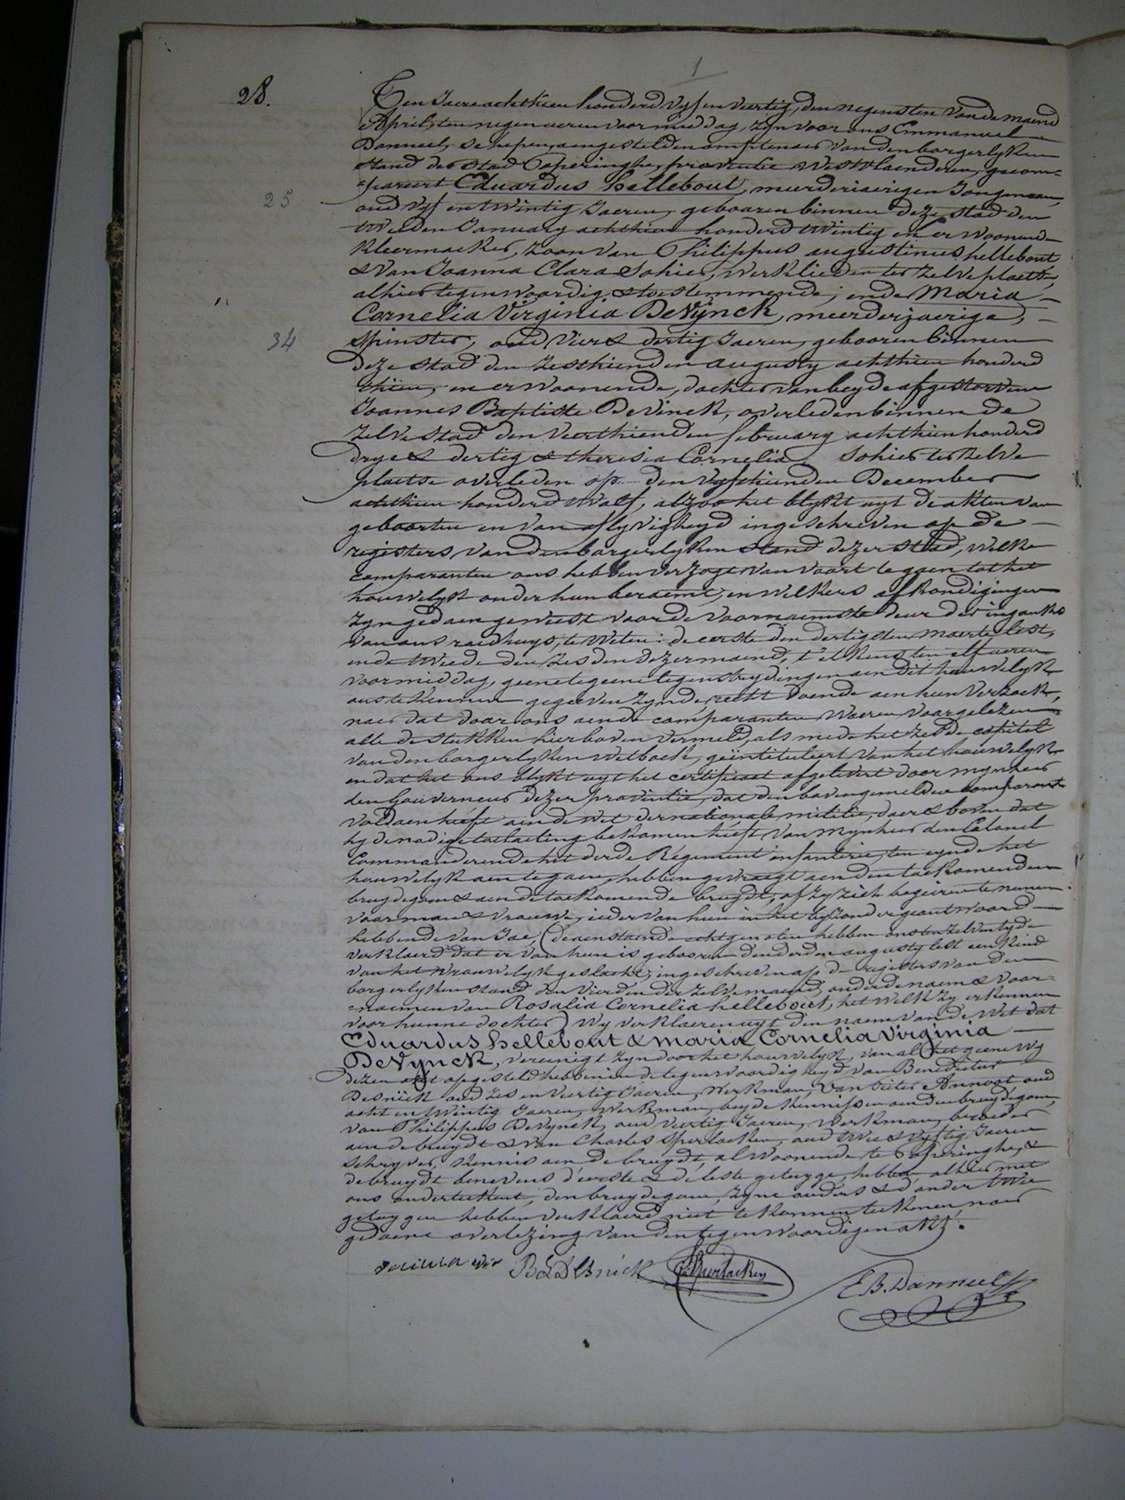 1
28.
Ten Jaere achthien honderd vyf en veertig, den negensten van de maend
April, ten negen ueren voormiddag, zyn voor ons Emmanuel
Danneel, schepen, aengestelden amptenaer van den borgerlyken
stand der stad Poperinghe, provintie Westvlaenderen, gecom-
pareert Eduardus Hellebout, meerderjaerigen Jongman,
25
oud vyf en twintig Jaeren, gebooren binnen deze stad den
tweeden January achthien honderd twintig en er woonende
kleermaeker, zoon van Philippus augustinus hellebout
& van Joanna Clara Sohier, werklieden ter zelve plaetse,
alhier tegenwoordig & toestemmende; ende Maria
Cornelia Virginia DeVijnck, meerderjaerige,
34
spinster, oud vier & dertig Jaeren, gebooren binnen
deze stad den zesthienden augusty achthien honderd
thien, en er woonende, dochter van beyde afgestorven
Joannes Baptiste DeVinck, overleden binnen de
zelve stad den veerthienden february achthien honderd
drye & dertig & theresia Cornelia Sohier ter zelve
plaetse overleden op den vyfthienden December
achthien honderd twaelf, alzoo het blykt uyt de akten van
geboorten en van aflyvigheyd ingeschreven op de
registers van den borgerlyken stand dezer stad, welke
comparanten ons hebben verzogt van voort te gaen tot het
houwelyk onder hun beraemt, en welkers afkondigingen
zyn gedaen geweest voor de voornaemste deur der ingank
van ons raedhuys, te weten: de eerste den dertigsten maerte lest,
ende tweede den zesden dezer maend, t'elkens ten elf ueren
voormiddag, geene tegenstrydingen aen dit houwelyk
ons te kennen gegeven zynde, recht doende aen hun verzoek,
naer dat door ons aen de comparanten waeren voorgelezen
alle de stukken hier boven vermeld, als mede het zesde capittel
van den borgerlyken wetboek, geïntituleert van het houwelyk
en dat het ons blykt uyt het certificaet afgelevert door mynheer
den Gouverneur dezer provintie, dat den bovengemelden comparant
voldaen heeft aen de wet der nationale militie, daer & boven dat
hy de nodige toelaeting bekomen heeft van Mynheer den Colonel
Commanderende het derde Regiment infanterie, ten eynde het
houwelyk aen te gaen, hebben gevraegt aen den toekomenden
bruydegom & aen de toekomende bruydt, of zy zich begeiren te nemen
voor man & vrouwe, ieder van hun in het byzonder geantwoord
hebbende van Jae, (dezen staende echtgenoten hebben ons ten zelven tyde
verklaerd dat er van hun is gebooren den derden augusty lest een kind
van het vrouwelyk geslacht, ingeschreven op de registers van den
borgerlyken stand den vierden der zelve maend, onder de naem & voor-
naemen van Rosalia Cornelia hellebout, het welk zy erkennen
voor hunne dochter) Wy verklaeren uyt den naem van de Wet dat
Eduardus Hellebout & Maria Cornelia Virginia
DeVynck, vereenigt zyn door het houwelyk, van al het geene wy
dezen akt opgesteld hebben in de tegenwoordigheyd van Benedictus
Desnick oud zes en veertig Jaeren, werkman, van Pieter Annoot oud
acht en twintig Jaeren, werkman, beyde kennissen aen den bruydegom,
van Philippus DeVynck, oud veertig Jaeren, werkman, broeder
aen de bruydt & van Charles Sperlaeken, oud twee & vyftig Jaeren
schryver, kennis aen de bruydt, al woonende te Poperinghe, &
de bruydt benevens d'eerste & de leste getuyge, hebben alhier met
ons onderteekent, den bruydegom, zyne ouders & d'ander twee
getuygen hebben verklaerd niet te konnen teekenen, naer
gedaene overlezing van den tegenwoordigen akt.
B L Desnick
E B. Danneel